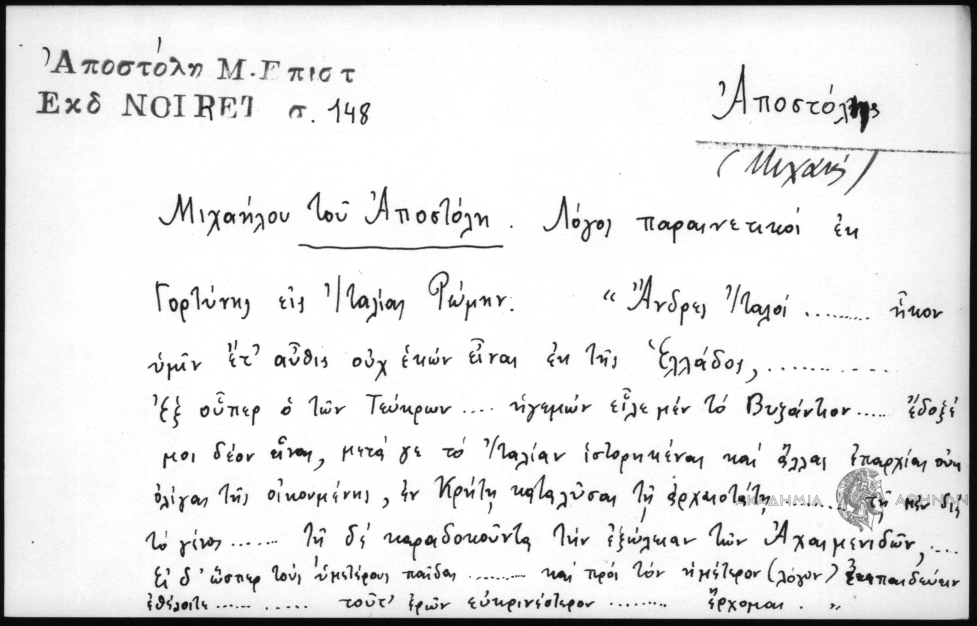 Ἀποστόλη Μ. Επιστ
Εκδ NOIRET σ. 148
Ἀποστόλης
(Μιχαήλ)
Μιχαήλου τοῦ Ἀποστόλη. Λόγοι παραινετικοί ἐκ
Γορτύνης εἰς Ἰταλίας Ῥώμην. "Ἄνδρες Ἰταλοί ......... ἧκον
ὑμῖν ἔτ' αὖθις οὐχ ἑκών εἶναι ἐκ τῆς Ἑλλάδος, ............
Ἐξ οὗπερ ὁ τῶν Τεύκρων .... ἡγεμών εἷλε μέν τό Βυζάντιον ..... ἔδοξέ
μοι δέον εἶναι, μετά γε τό Ἰταλίαν ἱστορηκέναι καί ἄλλας ἐπαρχίας οὐκ
ὀλίγας τῆς οἰκουμένης, ἐν Κρήτῃ καταλῦσαι τῇ ἀρχαιοτάτῃ ......... τῇ μέν διά
τό γένος ....... τῇ δέ καραδοκοῦντα τήν ἐξώλειαν τῶν Ἀχαιμενιδῶν, ....
Εἰ δ' ὥσπερ τούς ὑμετέρους παῖδας .......... καί πρός τόν ἡμέτερον (λόγον) ἐκπαιδεύειν
ἐθέλοιτε ...... ..... τοῦτ' ἐρῶν εὐκρινέστερον ........ ἔρχομαι. "
ΑΚΑΔΗΜΙΑ ΑΘΗΝΩΝ